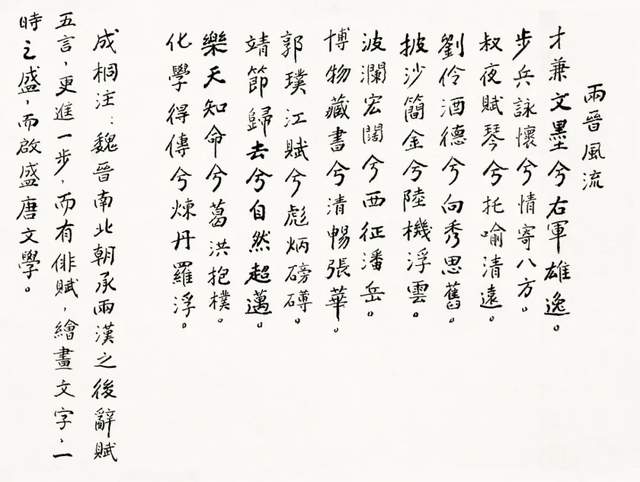 兩晉風流
才兼文墨兮右軍雄逸。
步兵詠懷兮情寄八方。
叔夜賦琴兮托喻清遠。
劉伶酒德兮向秀思舊。
披沙簡金兮陸機浮雲。
波瀾宏闊兮西征潘岳。
博物藏書兮清暢張華。
郭璞江賦兮彪炳磅礡。
靖節歸去兮自然超邁。
樂天知命兮葛洪抱樸。
化學得傳兮煉丹羅浮。
成桐注：魏晉南北朝承兩漢之後辭賦
五言，更進一步，而有俳賦，繪畫文字，一
時之盛，而啟盛唐文學。